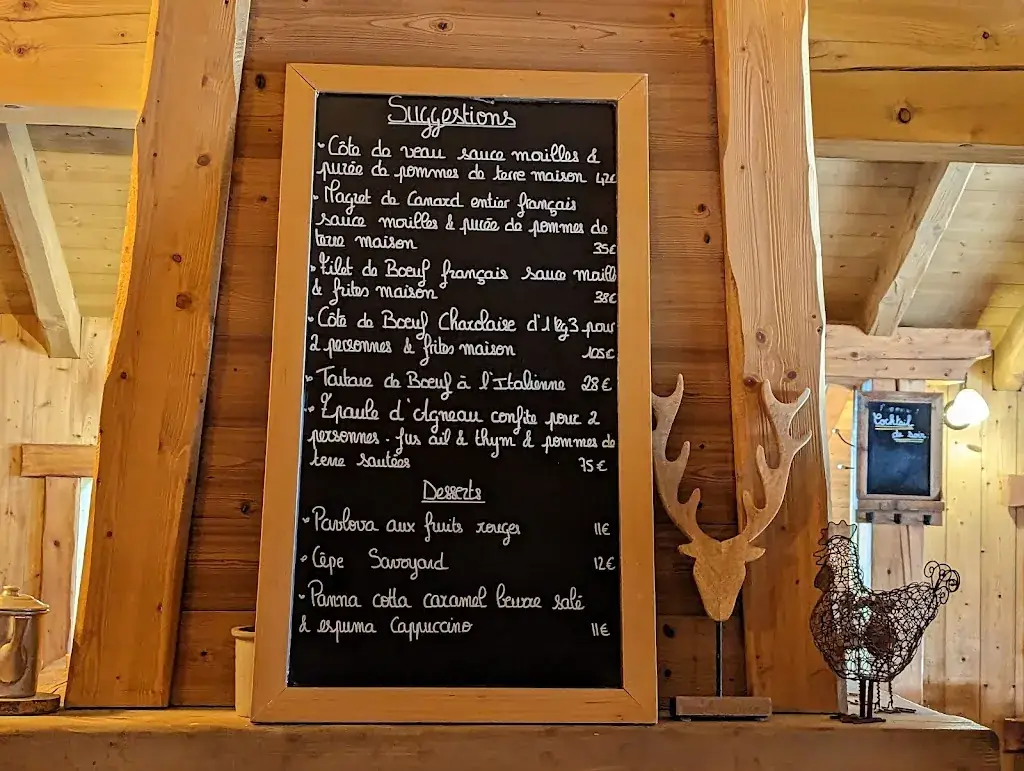 Suggestions
• Côte de veau sauce morilles &
purée de pommes de terre maison 42€
• Magret de Canard entier français
sauce morilles & purée de pommes de
terre maison 35€
• Filet de Boeuf français sauce morille
& frites maison 38€
• Côte de Boeuf Charolaise d'1kg3 pour
2 personnes & frites maison 105€
• Tartare de Boeuf à l'Italienne 28€
• Épaule d'Agneau confite pour 2
personnes - Jus ail & thym & pommes de
terre sautées 75€
Desserts
• Pavlova aux fruits rouges 11€
• Cêpe Savoyard 12€
• Panna cotta caramel beurre salé
& espuma Cappuccino 11€
Cocktail
du soir